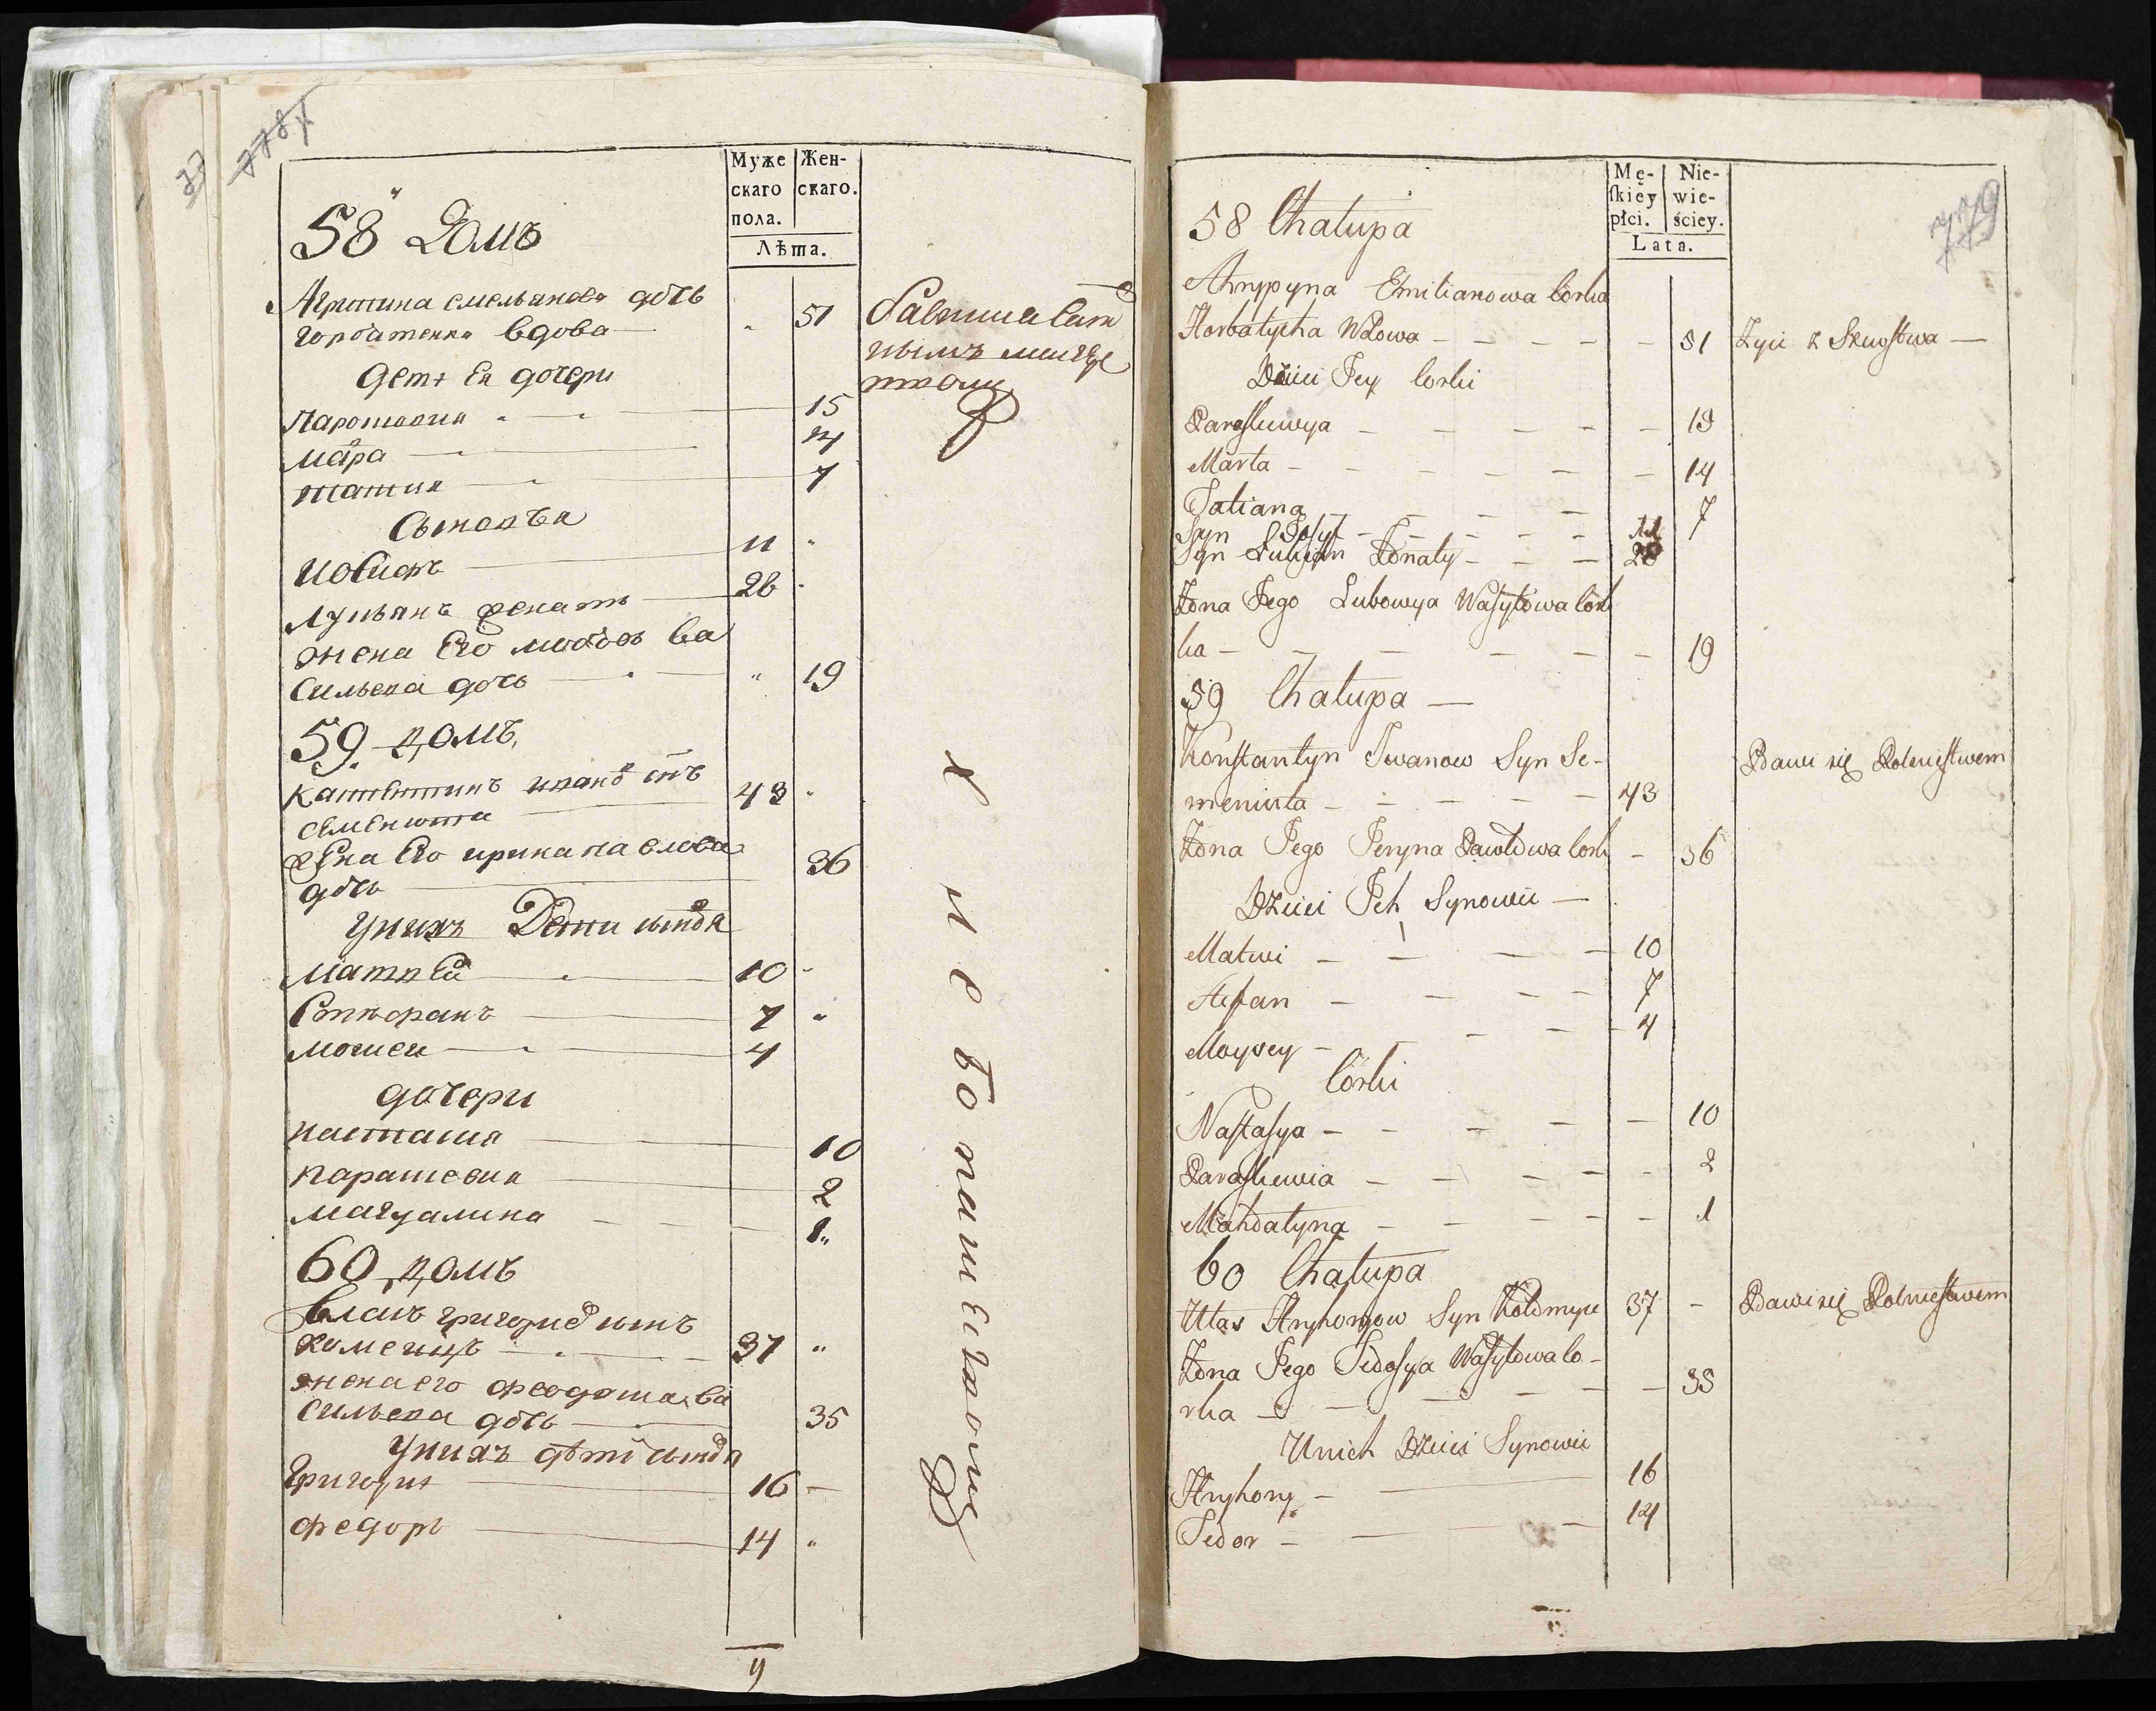 Муже
скаго
пола.
Жен-
скаго.
Лѣта.
58 Домъ
Агрипина емельянова дочь
горбатенка вдова 51
дети Ея дочери
15
Мара 14
татия 7
11
Лукьянъ женатъ 26
жена Его любовь ва
сильева дочь 19
59. домъ
иванов снъ
семенюта 43
жена Его ирина павлова
дочь 36
у них Дети
Матвей 10
Стефанъ 7
Мойсеи 4
дочери
настасия 10
парашевия 2
магдалина 1
60 домъ
Власъ григориев сынъ
37
жена его феодосия ва
сильева дочь 35
у нихъ дѣти
григории 16
федоръ 14
9
хлебопашеством
779
Mę-
ſkiéy
płci.
Nie-
wie-
ściey.
Lata.
58 Chałupa
Ahrypyna Emilianowa Córka
Horbatycha Wdowa 51 Żyie z
Dzieci Jey Córki
Paraskewya 15
Marta 14
Tatiana 7
Syn Josyf 11
Syn Łukian Żonaty 26
Żona Jego Lubowya Wasylowa Cór
ka 19
59 Chałupa
Konstantyn Iwanow Syn Se-
meniuta 43 Bawi się Rolnictwem
Żona Jego Jeryna Pawłowa Córk 36
Dzieci Ich Synowie
Matwi 10
Stefan 7
Moysey 4
Córki
Nastasya 10
Paraskewia 2
Mahdałyna 1
60 Chałupa
Ułas Hryhoryow Syn Kołomyie 37 Bawi się Rolnictwem
Żona Jego Fedosya Wasylowa Có-
rka 35
U nich Dzieci Synowie
Hryhory 16
Fedor 14